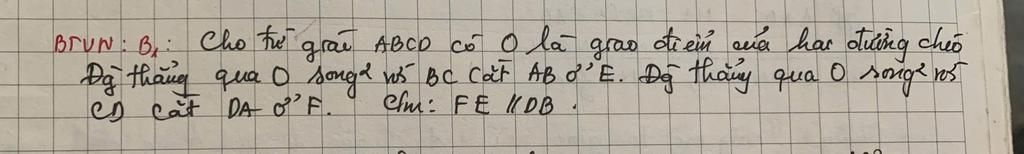 BTVN: B₁: Cho tứ giác ABCD có O là giao điểm của hai đường chéo
Đg thẳng qua O song² với BC cắt AB ở E. Đg thẳng qua O song² với
CD cắt DA ở F. Cm: FE // DB.